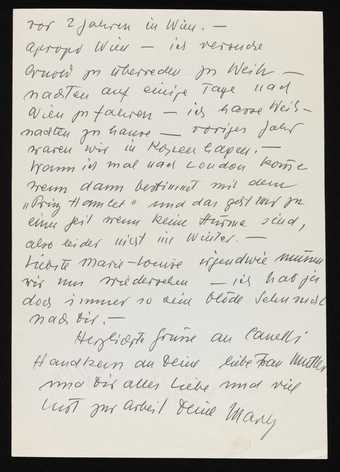 vor 2 Jahren in Wien. —
Apropo Wien — ich versuche
Arnold zu überreden zu Weih —
nachten auf einige Tage nach
Wien zu fahren — ich hasse Weih-
nachten zu hause — voriges Jahr
waren wir in Kopenhagen. —
Wann ich mal nach London komme
wenn dann bestimmt mit dem
„Prinz Hamlet" und das geht nur zu
einer Zeit wenn keine Stürme sind,
also leider nicht im Winter. —
Liebste Marie-Louise irgendwie müssen
wir uns wiedersehen — ich hab ja
doch immer so eine blöde Sehnsucht
nach Dir. —
Herzlichste Grüsse an Canetti
Handkuss an Deine liebe Frau Mutter
und Dir alles Liebe und viel
Lust zur Arbeit Deine Mary